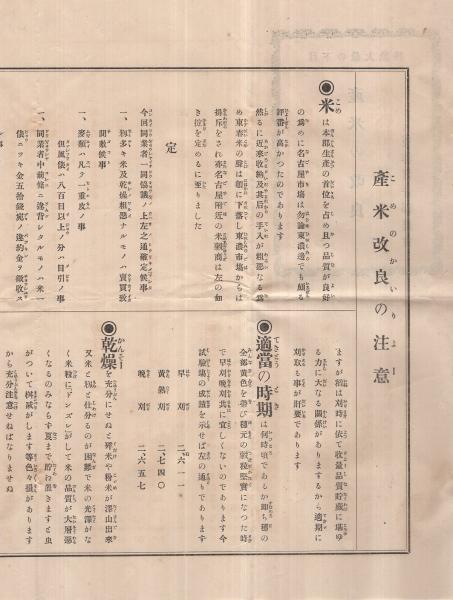 産米改良の注意
◉米は本郡生産の首位を占め且つ品質が良好
の為めに名古屋市場は勿論東濃邊でも頗る
評番が高かつたのであります
然るに近來收納及其后の手入が粗悪なる為
め東春米の聲は頓に下落し東濃市場からは
排斥をされ亦名古屋附近の米穀商は左の如
き位を定めるに至りました
定
今回同業者一同協議ノ上左之通確定候事
一、粉多キ米及乾燥粗悪ナルモノハ賣買致
間敷候事
一、麥類ハ凡ソ一重皮ノ事
但風俵ハ八百目以上ノ分ハ目引ノ事
一、同業者中前條ニ違背シタルモノハ米一
俵ニツキ金五拾錢宛ノ違約金ヲ徵收ス
ますが稻は刈時に依て收量品質貯藏に堪ゆ
る力に大なる關係がありまするから適期に
刈取る事が肝要であります
◉適當の時期は何時頃であるか即ち穂の
全部黄色を帶び穂元の穀粒堅實になつた時
で早刈晩刈共に宜しくないのであります今
試驗場の成績を示せば左の通りであります
早刈 二、六一一
黄熟刈 二、七四〇
晩刈 二、六五七
◉乾燥を充分にせぬと死米や粉米が澤山出來
又米と籾と仕分るのが困難で米の光澤がな
く米粒にドンズレがして米の品質が大層悪
くなるのみならす夏まで貯わ置きますと虫
がついて桝減がします等色々損があります
から充分注意せねばなりませぬ